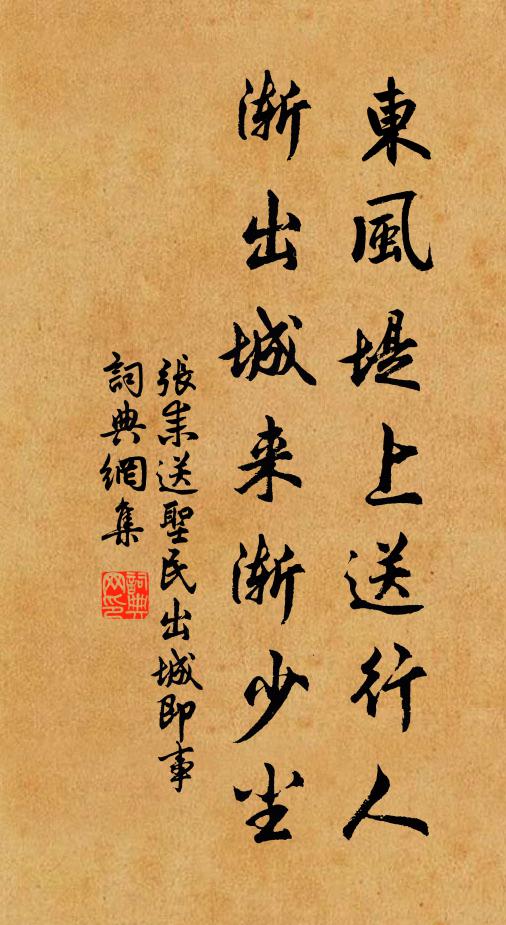 東風堤上送行人
漸出城来漸少尘
張耒送聖民出城即事
詞典網集
詞典
网印